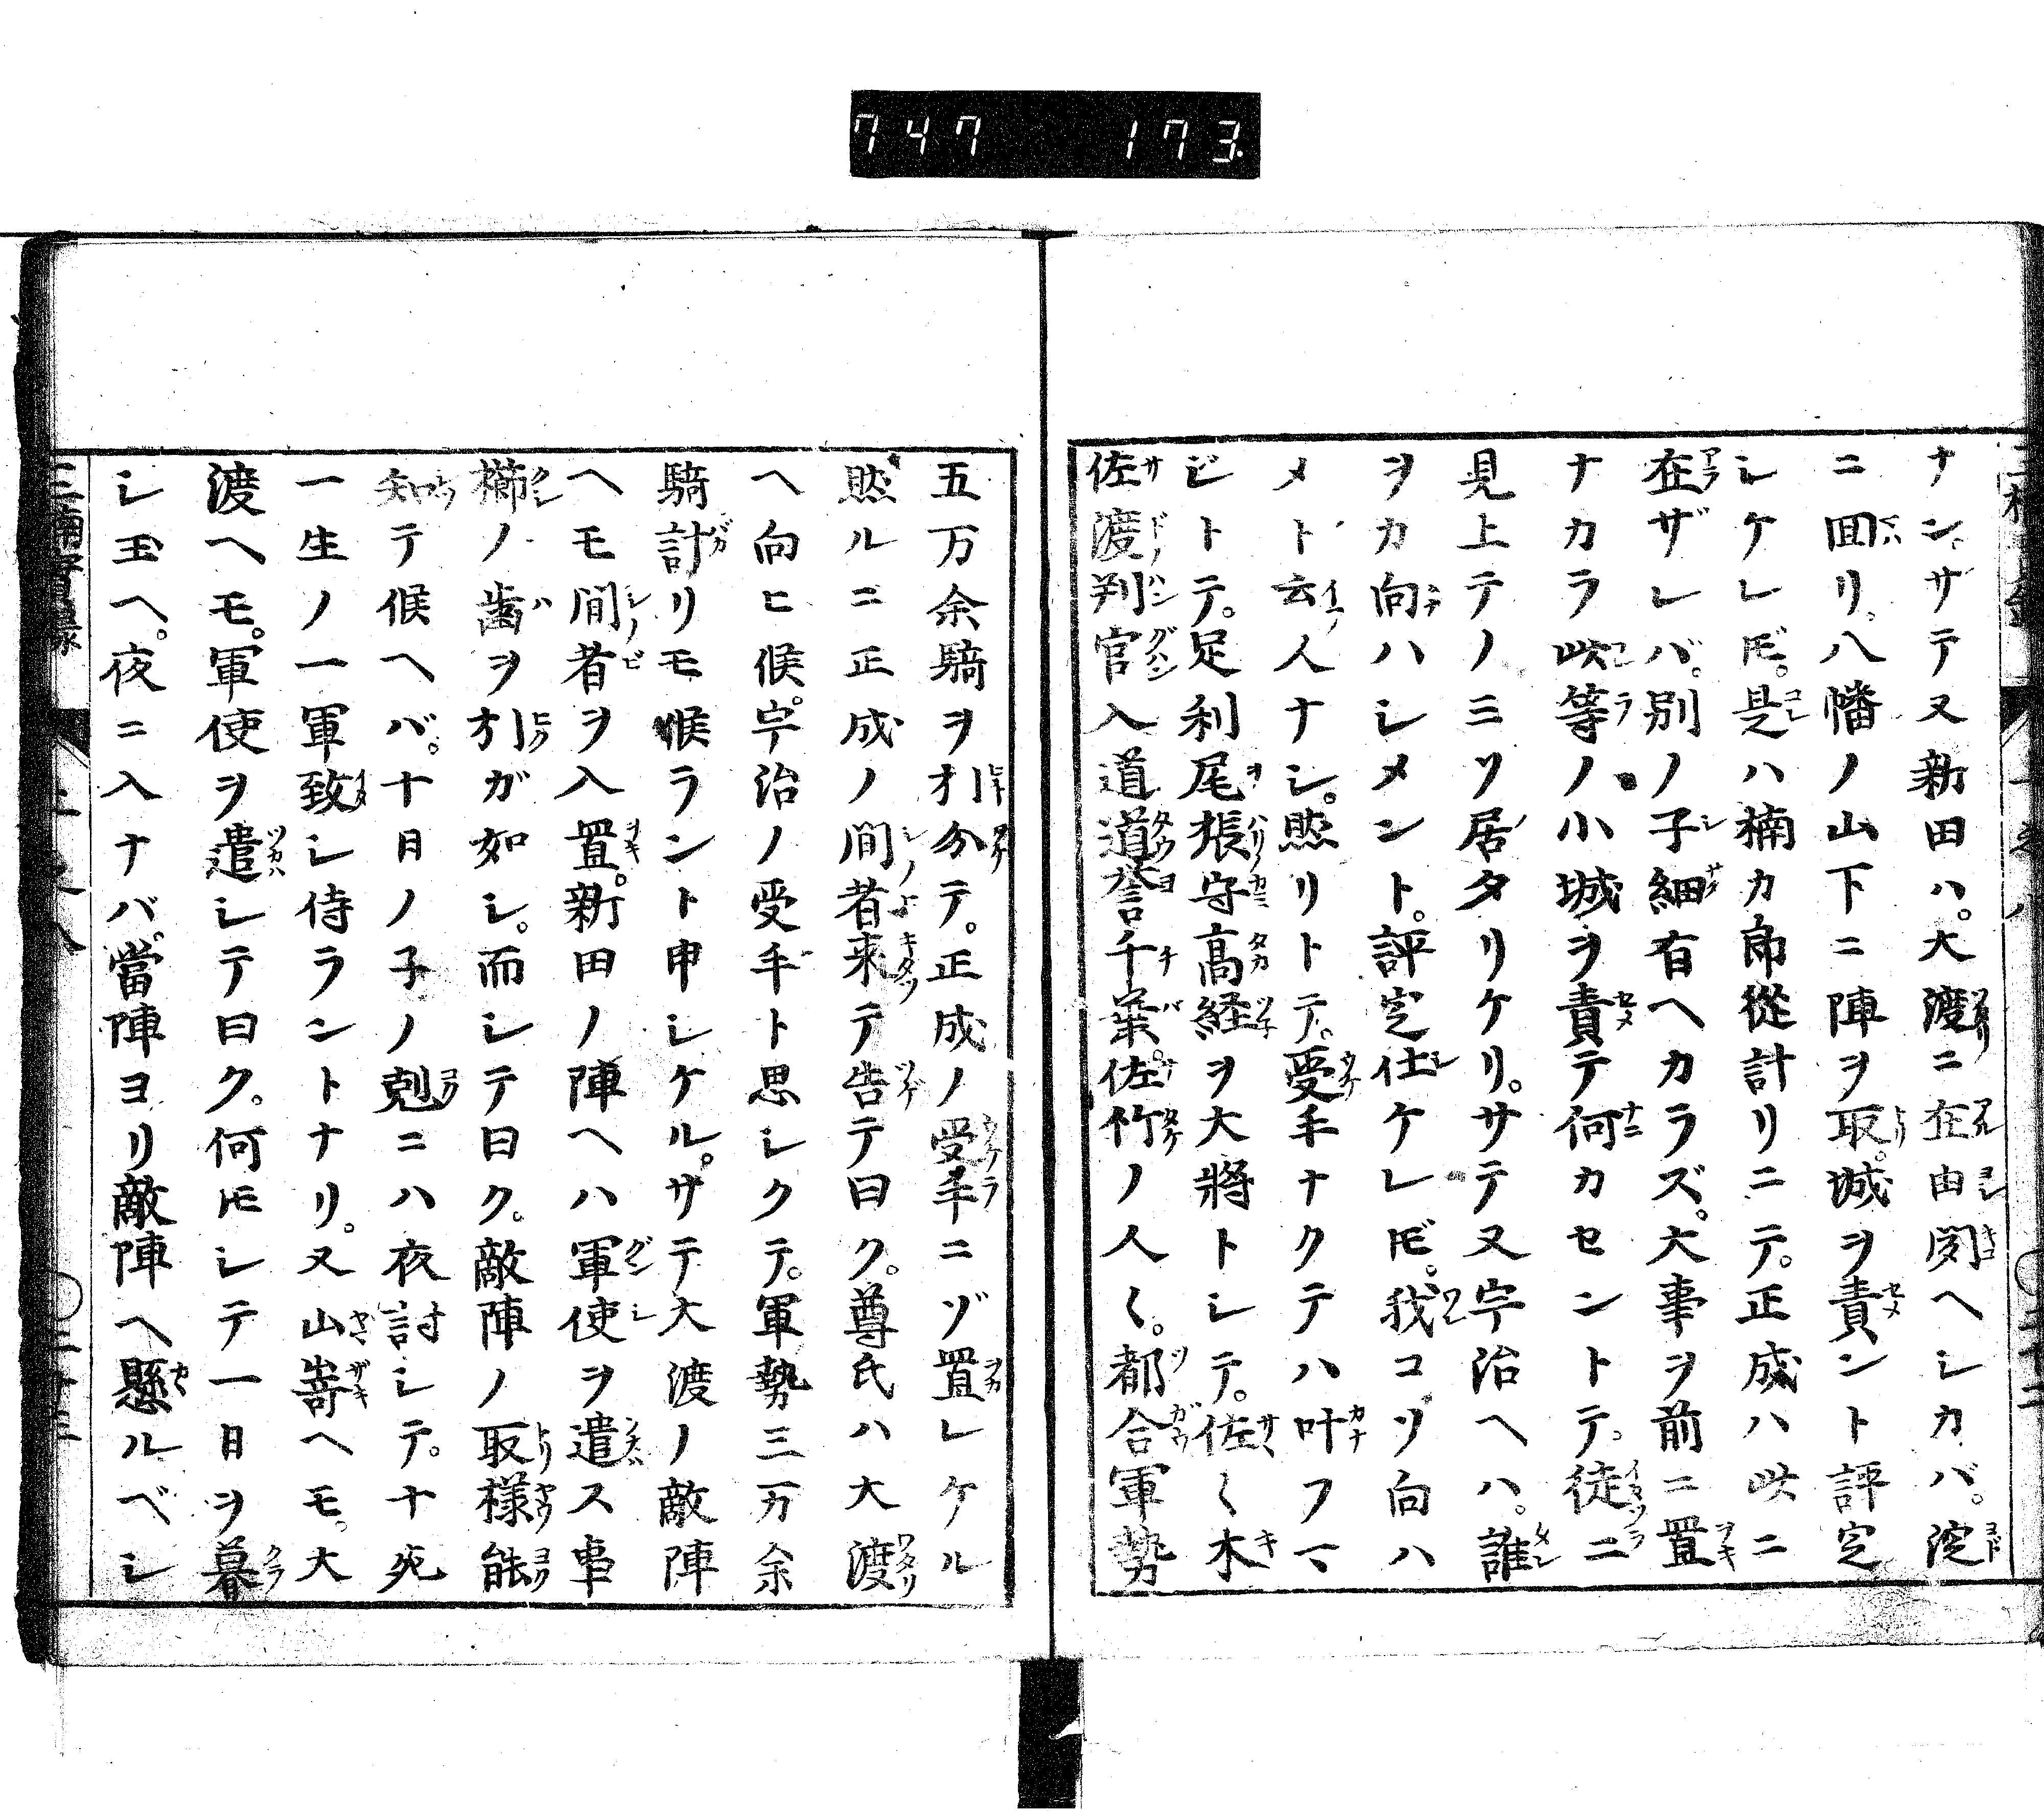 747 173
ナンサテ又新田ハ。大渡ニ在由聞ヘシカバ。淀
ニ回リ。八幡ノ山下ニ陣ヲ取。城ヲ責ント評定
シケレ𪜈。是ハ楠カ命從計リニテ。正成ハ此ニ
在ザレバ。別ノ子細有ヘカラズ。大事ヲ前ニ置
ナカラ此等ノ小城ヲ責テ何カセントテ。徒ニ
見上テノミソ居タリケリ。サテ又宇治ヘハ。誰
ヲカ向ハシメント。評定仕ケレ𪜈。我コソ向ハ
メト云人ナシ。然リトテ。受手ナクテハ叶フマ
ジトテ。足利尾張守高経ヲ大將トシテ。佐〻木
佐渡判官入道道誉千葉。佐竹ノ人〻。都合軍勢
五万余騎ヲ引分テ。正成ノ受手ニゾ置レケル
然ルニ正成ノ間者来テ告テ曰ク。尊氏ハ大渡
ヘ向ヒ候。宇治ノ受手ト思シクテ。軍勢三万余
騎計リモ候ラント申シケル。サテ大渡ノ敵陣
ヘモ間者ヲ入置。新田ノ陣ヘハ軍使ヲ遣ス事
櫛ノ歯ヲ引ガ如シ。而シテ曰ク。敵陣ノ取様能
知テ候ヘバ。十日ノ子ノ剋ニハ夜討シテ。十死
一生ノ一軍致シ侍ラントナリ。又山嵜ヘモ。大
渡ヘモ。軍使ヲ遣シテ曰ク。何𪜈シテ一日ヲ暮
シ玉ヘ。夜ニ入ナバ。當陣ヨリ敵陣ヘ懸ルベシ
三楠實録